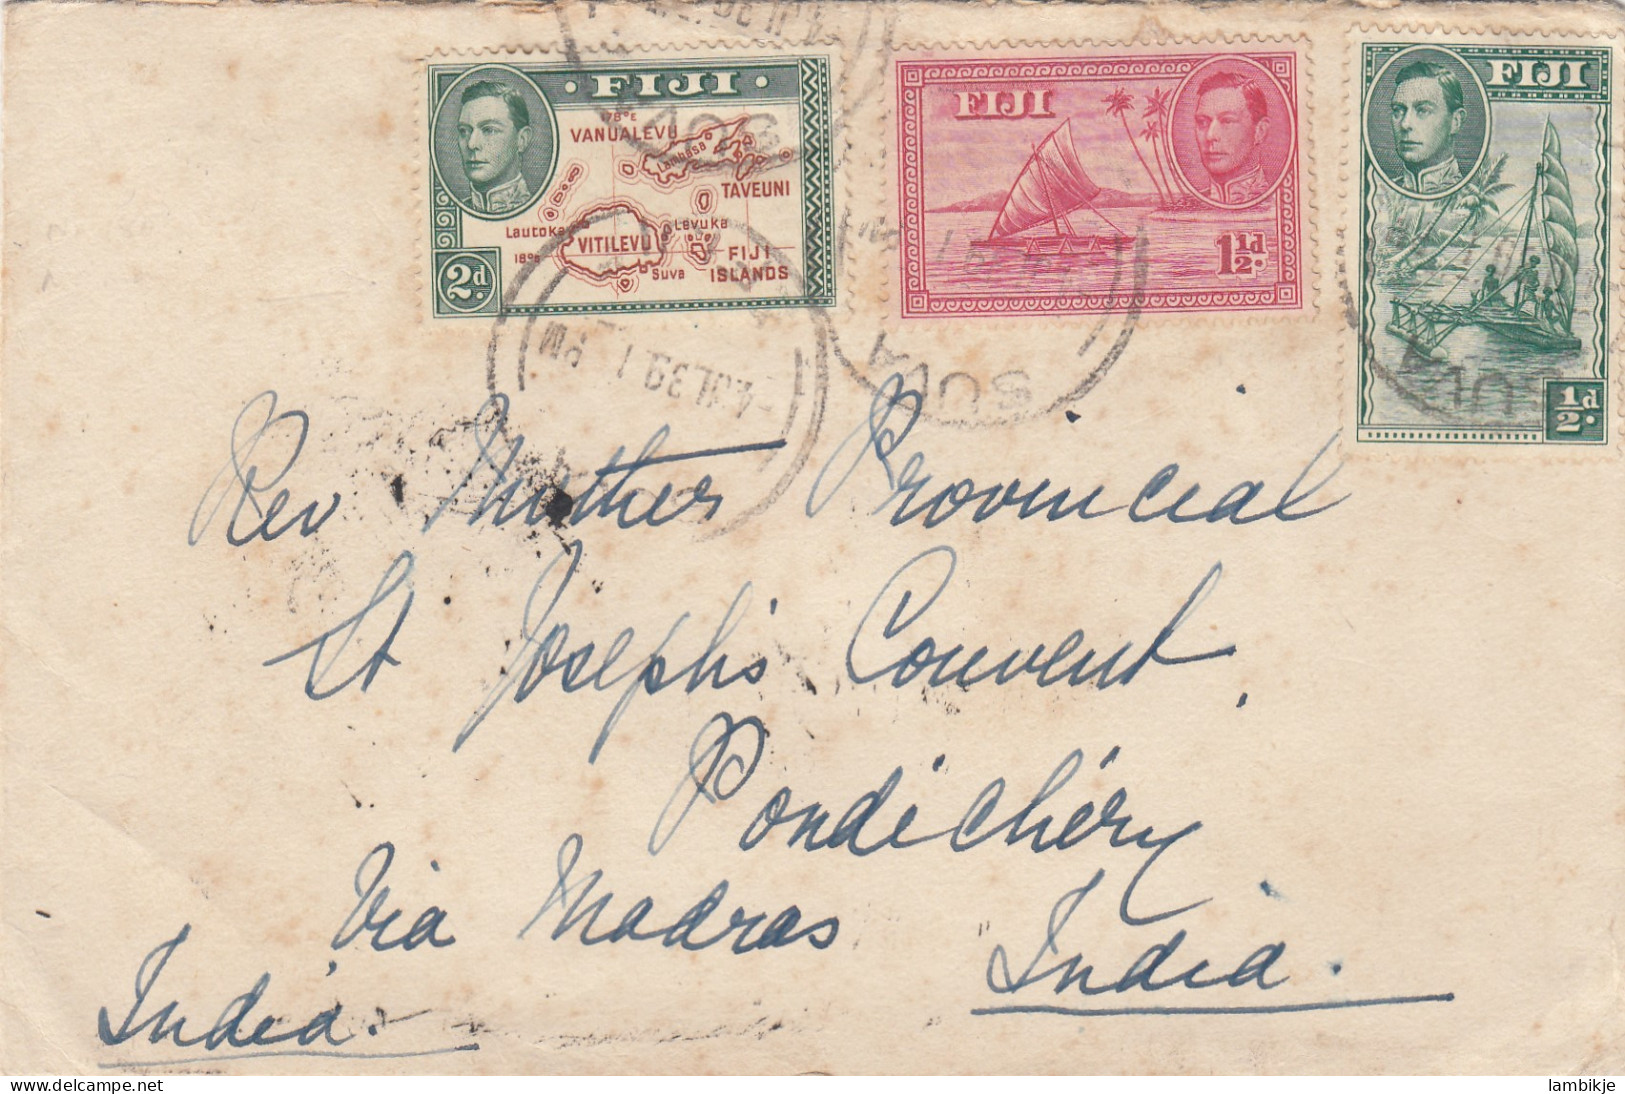 FIJI
178°E
VANUALEVU
Lambasa
TAVEUNI
Lautoka
Levuka
VITILEVU
18°S
Suva
FIJI
ISLANDS
2d.
FIJI
1½d.
FIJI
½d.
SUVA
-4 JL 39 1 PM
SUVA
SUVA
Rev Mother Provincial
St Joseph's Convent,
Pondichéry
Via Madras
India.
India.
lambikje